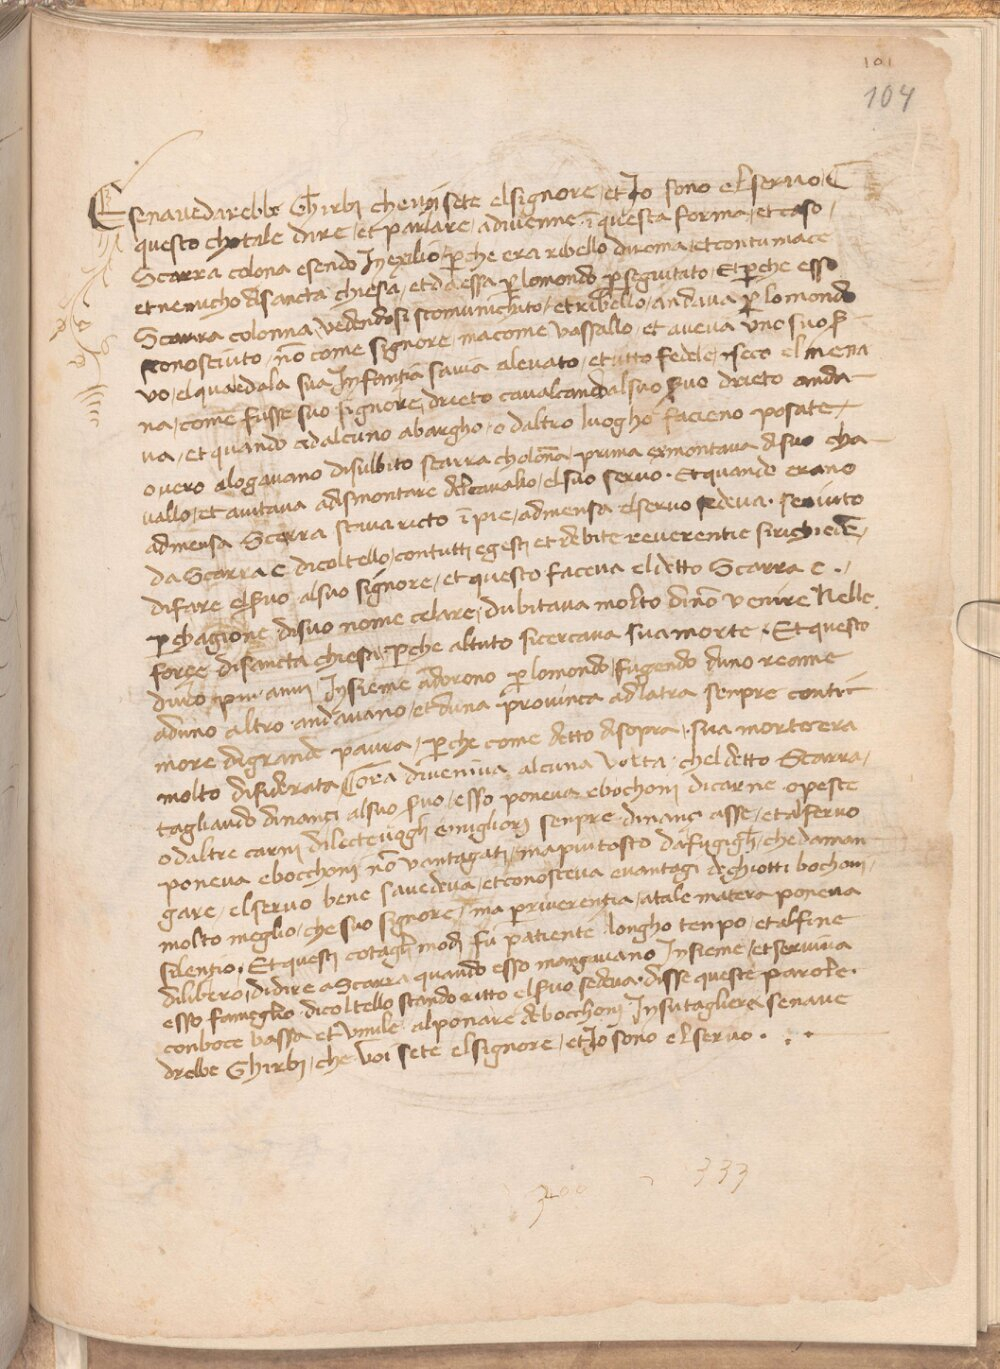 101
104
E senavedarebbe Ghirbj che voi sete elsignore, et Jo sono el servo, E
questo chotale dire, et parlare, adivenne ī questa forma, et caso,
Scarra colona esendo In exilio, p̱che era ribello diroma, et contumace
et nemicho di sancta chiesa, et da essa p̱ lomondo p̱seguitato, Et p̱che esso
Scarra colonna, vedendosi scomunichito, et ribello, andava p̱ lomondo
sconosciuto, nō come signore, ma come vassallo, et aveva uno suo
vo, elquale dala sua Infantia savia alevato, et tutto fedele, seco el mena
na, come fusse suo signore, drieto cavalcando alsuo servo drieto anda
va, et quando ad alcuno abargho, o daltro luogho facieno posate,
overo alogavano disubito scarra cholōna, prima exmontava di suo cha
vallo, et aiutava adismontare del cavallo, el suo servo. Et quando erano
admensa Scarra stava ricto ī pie, admensa elservo sedeva. servito
da Scarra e dicoltello, con tutti e gesti et debite reverentie si richiede,
di fare el servo alsuo signore, et questo faceva el detto Scarra e.,
p̱ chagione di suo nome celare, dubitava molto di nō venire Nelle
forçe di sancta chiesa, p̱che altuto si cercava sua morte. Et questo
duro piu anni Insieme adorono p̱ lomondo, fugendo duno reame
aduno altro andavano, et duna provinca ad latra senpre con ti
more di grande paura, p̱che come detto disopra, sua morte era
molto disiderata, Cōra diveniva alcuna volta, chel detto Scarra,
tagliando dinançi alsuo servo, esso poneva e bochonj di carne o pesce
o daltre carni di lecteuogghi e migliorj senpre dinançi asse, et al servo
poneva e bocchonj nō vantagati, ma piutosto da fugigli, che da man
gare, el servo bene savedeva, et conosceva e vantagi de ghiotti bochoni,
molto meglio, che suo signore, ma p̱ riverentia, a tale matera poneva
silentio. Et questi cotaglj modj fu patiente longho tenpo, et al fine
dilibero, di dire a Scarra quando esso mangavano Insieme, et serviva
esso fameglio dicoltello stando ritto el servo sedeva. disse queste parole.
con boce bassa et umile al ponare de bocchonj In su tagliere senave
drebbe Ghirbj, che voi sete el signore, et Jo sono el servo. . .
333